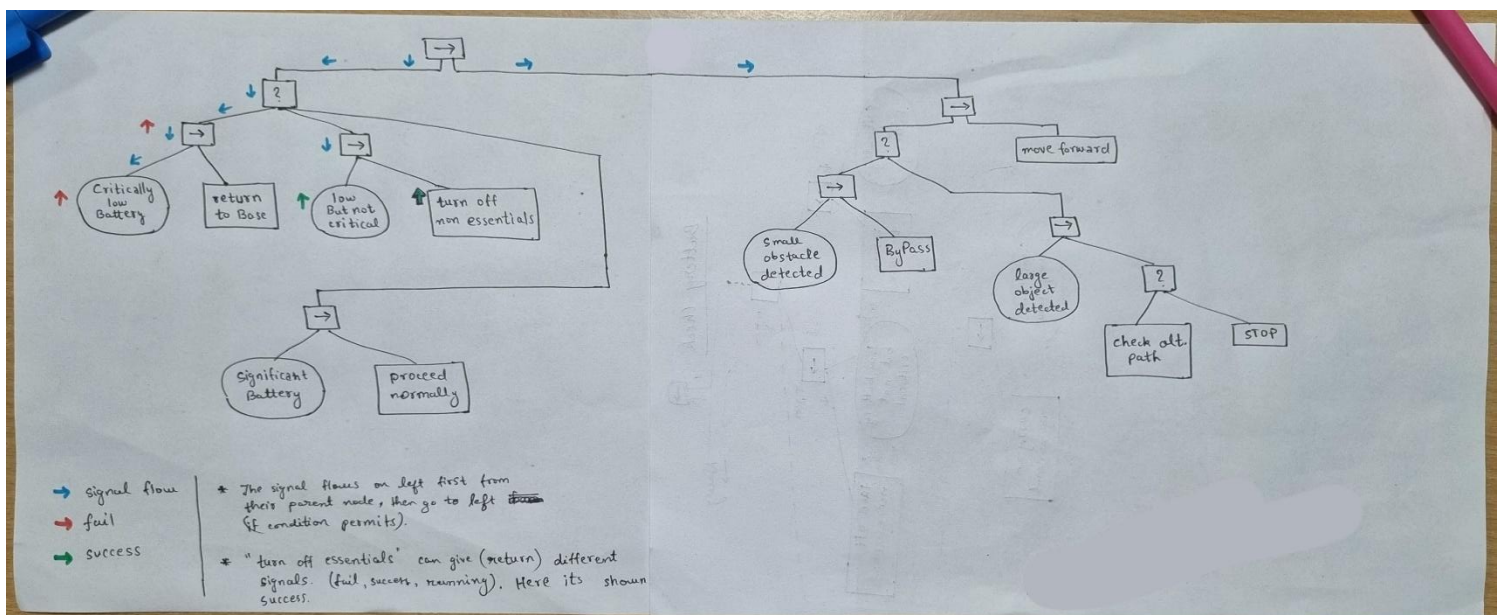 →
?
→
→
→
Critically
low
Battery
return
to Base
low
But not
critical
turn off
non essentials
→
?
move forward
→
Small
obstacle
detected
ByPass
→
large
object
detected
?
check alt.
path
STOP
→
Significant
Battery
proceed
normally
→ signal flow
→ fail
→ success
* The signal flows on left first from
their parent node, then go to left
(if condition permits).
* "turn off essentials" can give (return) different
signals. (fail, success, running). Here its shown
success.